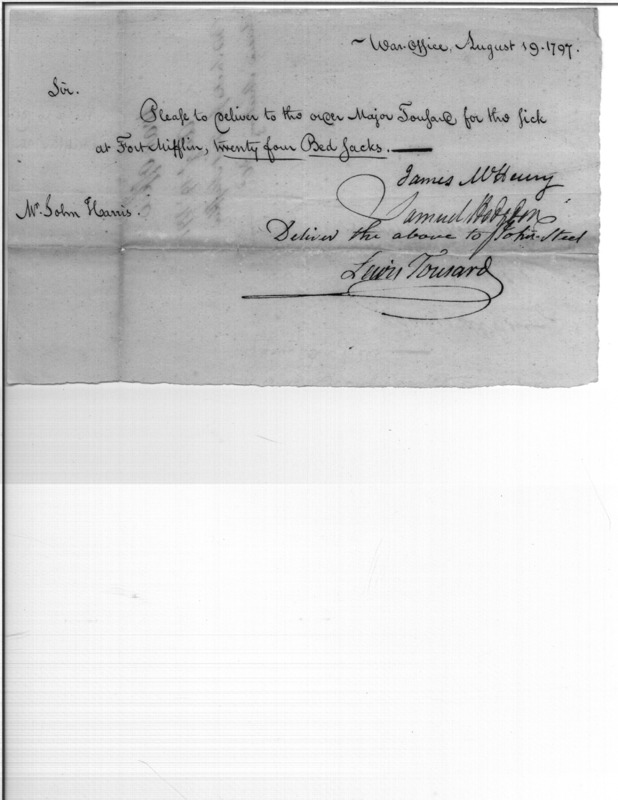 ~ War-Office, August 19. 1797.
Sir.
Please to deliver to the order Major Tousard for the sick
at Fort Mifflin, twenty four Bed Sacks.
James McHenry
Samuel Hodgdon
Mr. John Harris.
Deliver the above to John Steel
Lewis Tousard